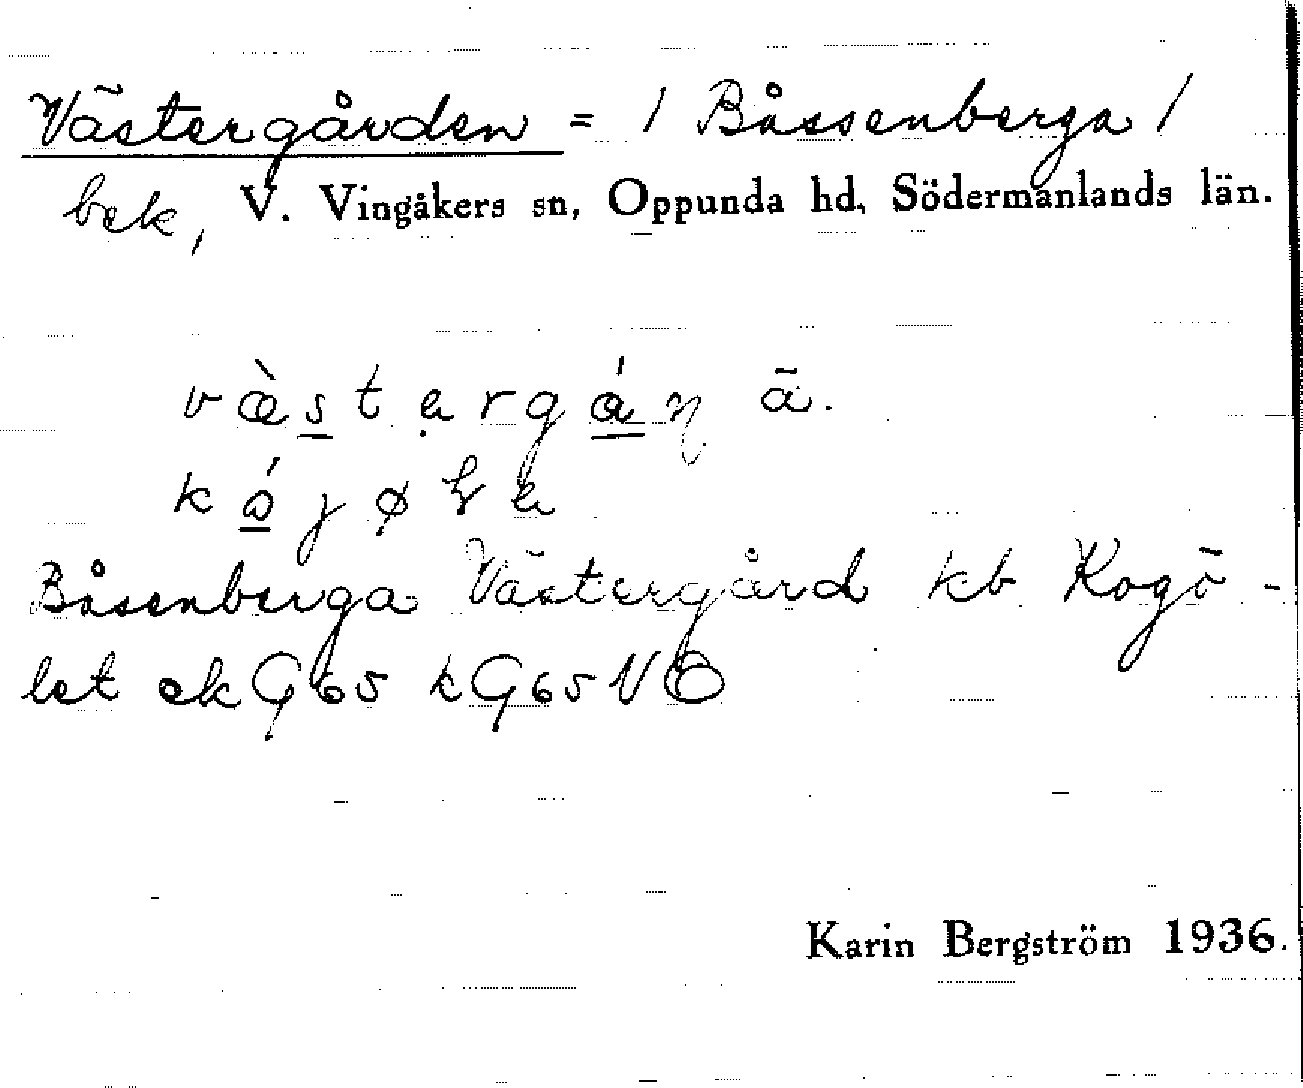 Västergården = / Båssenberga /
bek, V. Vingåkers sn, Oppunda hd, Södermanlands län.
væ̀stergån ā.
Båsenberga Västergård kb Kogö-
let ekG65 kG65NO
Karin Bergström 1936.